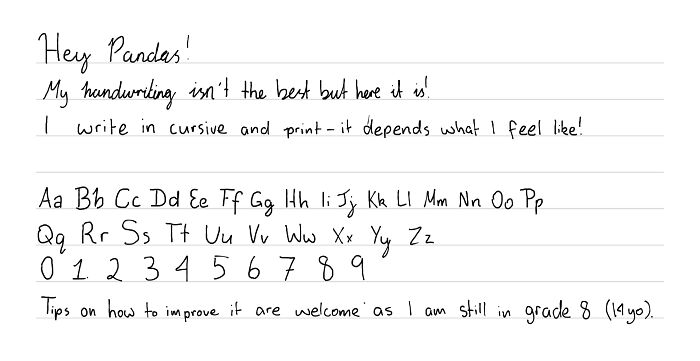 Hey Pandas!
My handwriting isn't the best but here it is!
I write in cursive and print - it depends what I feel like!
Aa Bb Cc Dd Ee Ff Gg Hh Ii Jj Kk Ll Mm Nn Oo Pp
Qq Rr Ss Tt Uu Vv Ww Xx Yy Zz
0 1 2 3 4 5 6 7 8 9
Tips on how to improve it are welcome as I am still in grade 8 (14 yo).